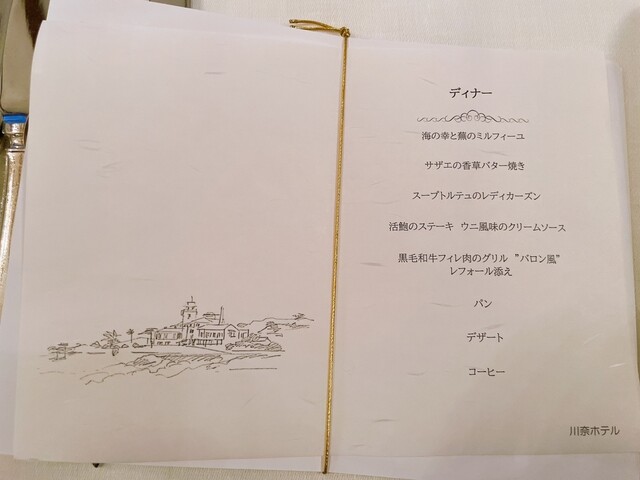 ディナー
海の幸と蕪のミルフィーユ
サザエの香草バター焼き
スープトルテュのレディカーズン
活鮑のステーキ ウニ風味のクリームソース
黒毛和牛フィレ肉のグリル ”バロン風”
レフォール添え
パン
デザート
コーヒー
川奈ホテル